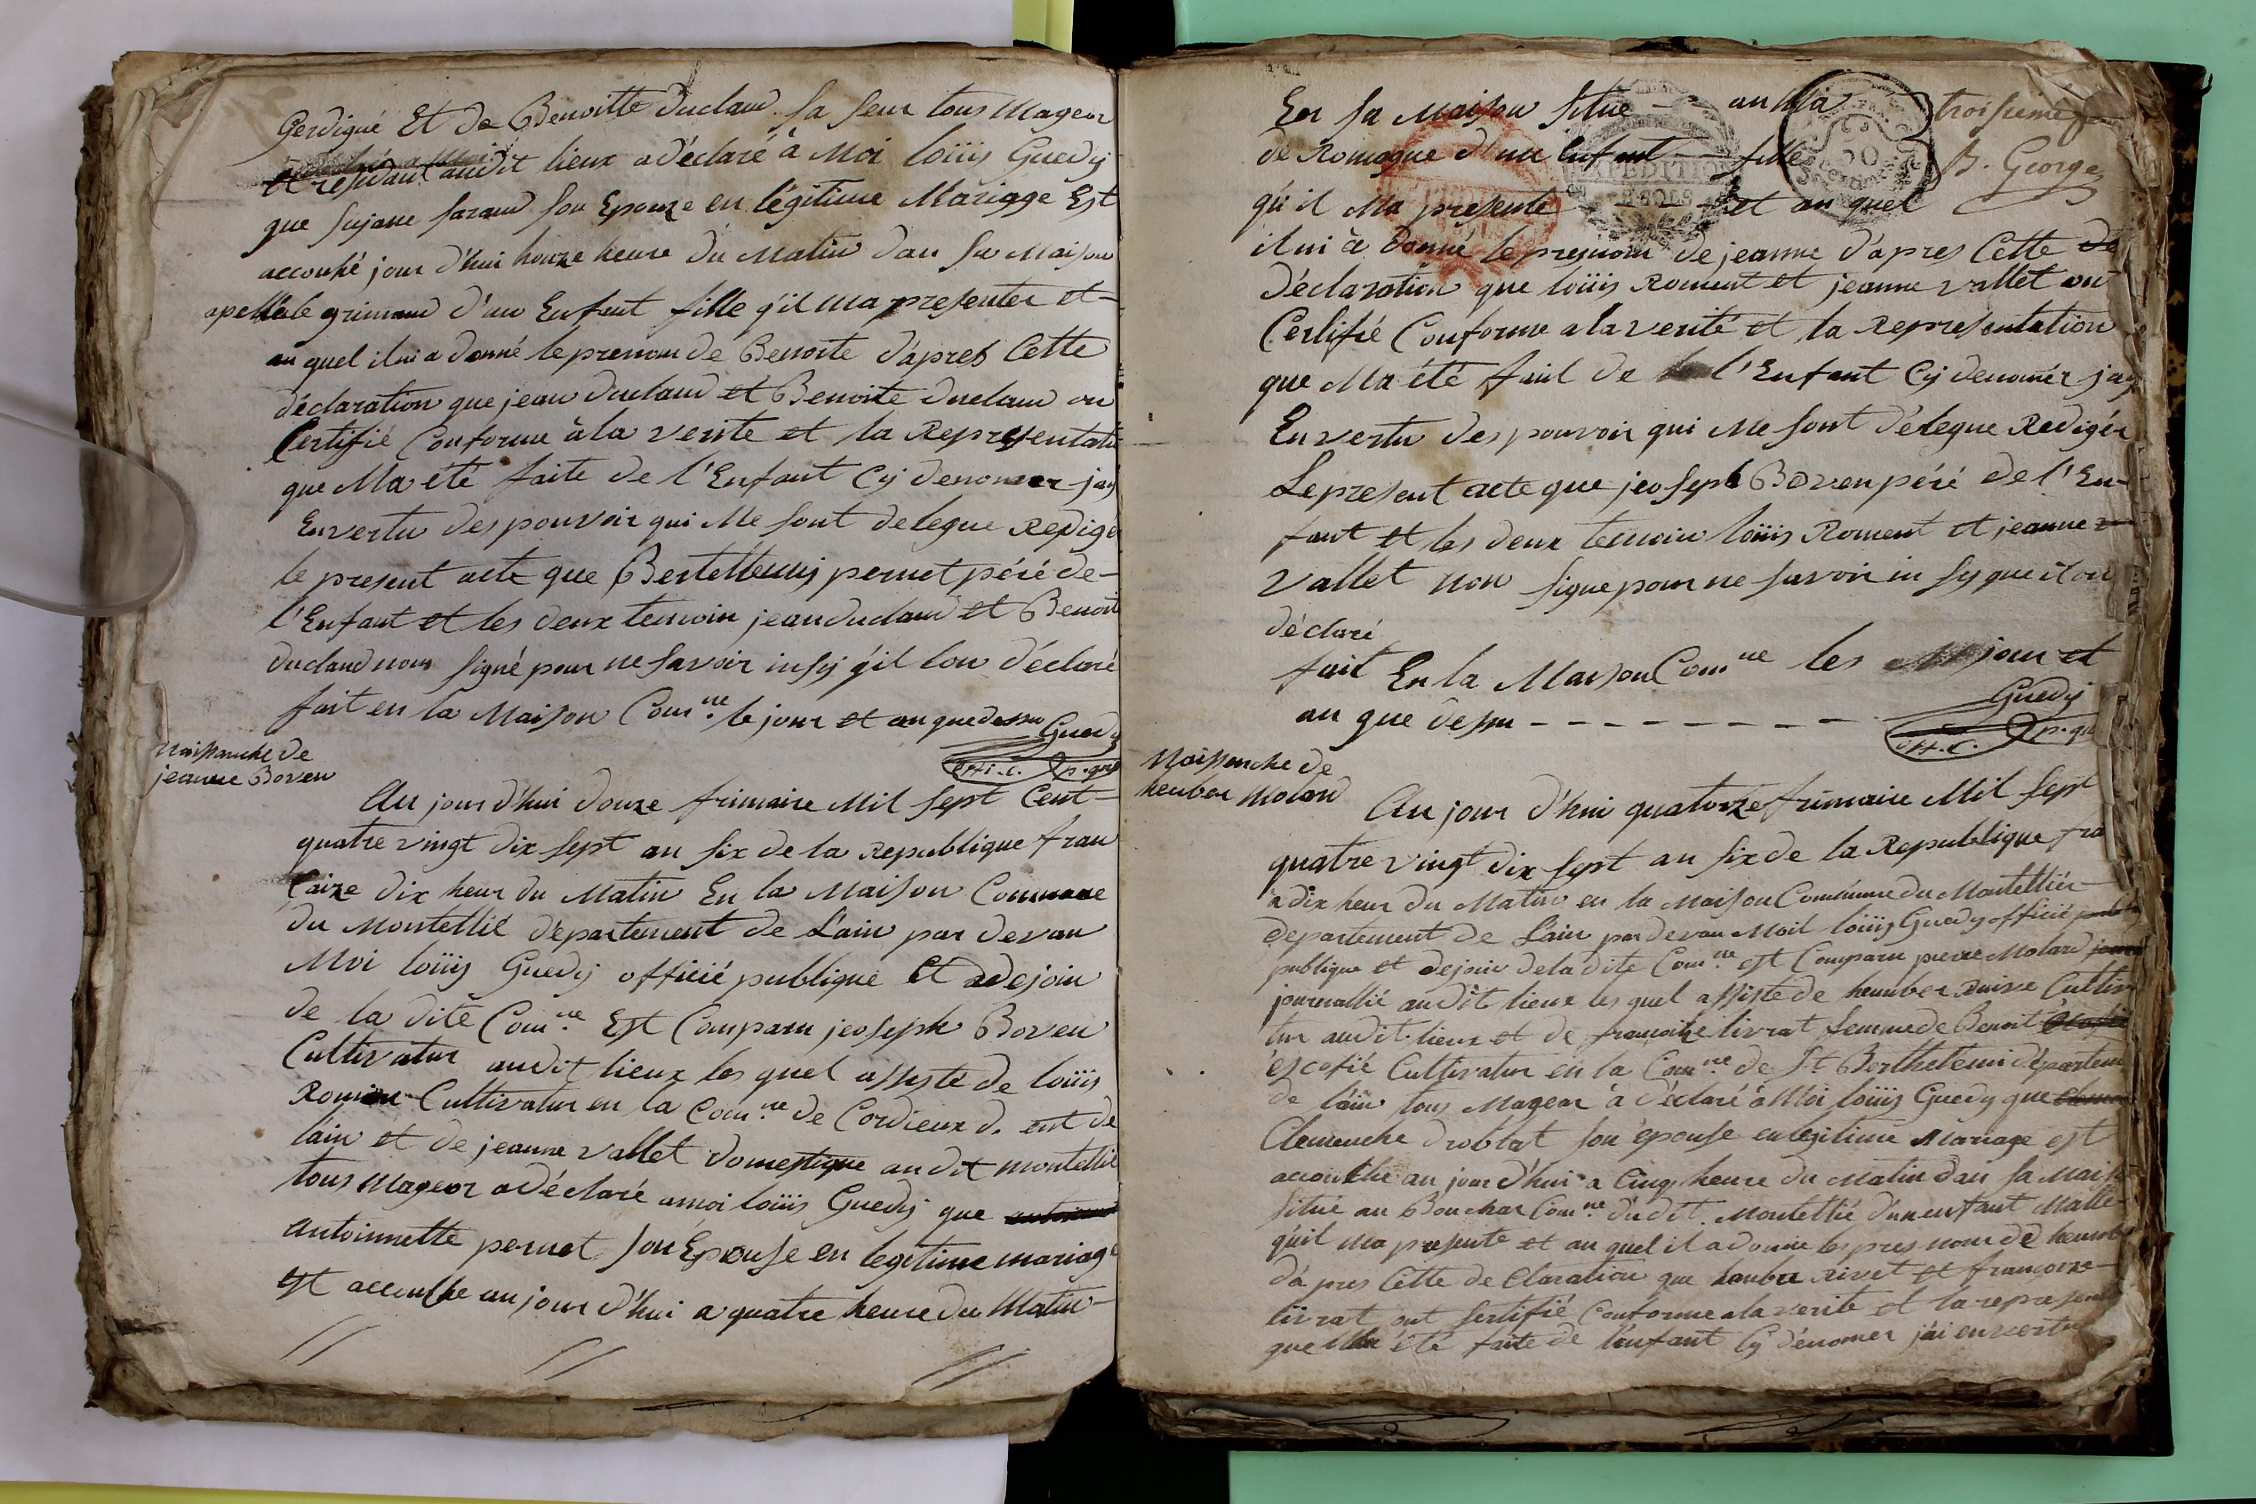 Gerdiqué Et de Benoitte duclaud sa seur tous Mageor
et residant audit lieux a déclaré à Moi loüis Guedy
que sujane saraud son Epouze en légitime Mariage Est
accouhé jour d'hui honze heure du Matin dan sa Maison
apellé le grimaud d'un Enfant fille q'il ma presenter et
au quel il ui a donné le prenom de Benoite d'apres Cette
déclaration que jean duclaud et Benoite duclaud on
Certifié Conforme à la verite et la Representati
que Ma été faite de l'Enfant Cy denomer jay
En vertu des pouvoir qui Me sont delegue Redige
le present acte que Bertellemy pernet péré de
l'Enfant et les deux temoin jean duclaud et Benoit
duclaud nom signé pour ne savoir insy q'il lon déclaré
fait en la Maison Com.ne le jour et an que dessu Guedy
off. p. que
Naissanche de
jeanne Boven
Au jour d'hui douze frimaire Mil sept Cent
quatre vingt dix sept an six de la Republique fran
Caize dix heur du Matin En la Maison Commune
du Montellié département de L'ain par devan
Moi loüis Guedy officié publique et adejoin
de la dite Com.ne Est Comparu jeoseph Boven
Cultivatur audit lieux les quel assisté de loüis
Romien Cultivatur en la Com.ne de Cordieux d. ent de
lain et de jeanne vallet domestique audit montellié
tous Mageor a déclaré a moi loüis Guedy que
antoinnette pernet son Épouse en legitime mariage
est accouche au jour d'hui a quatre heure du Matin
En sa Maison situe au Ma
de Romagne d'un Enfant fille
qu'il Ma presente et au quel
il ui à donné le prenom de jeanne d'apres Cette de
déclaration que loüis Roment et jeanne vallet on
Certifié Conforme a la verité et la Representation
que Ma été fait de l'Enfant Cy denomér jay
En vertu des pouvoir qui Me sont délegue Redigér
Le present acte que jeoseph Boven péré de l'En-
fant et les deux temoin loüis Roment et jeanne
vallet non signe pour ne savoir in sy que il on
déclaré
fait En la Maison Com.ne les jour et
an que dessu Guedy
off. p. que
troisieme
B. George
Naissanche de
heuber Molard
Au jour d'hui quatorze frimaire Mil sept
quatre vingt dix sept an six de la Republique fra
a dix heur du Matin en la Maison Commune du Montellier
departement de Lain par devan Moil loüis Guedy officié
publique et dejoin de la dite Com.ne est Comparu pierre Molard
journallié audit lieux les quel assisté de heuber Rivire Cultiv
tur audit lieux et de francoize livrat femme de Benoit
escofié Cultivatur en la Com.ne de St Berthelemi départem
de lain tous Mageor à déclaré à Moi loüis Guedy que
Clemenche droblat son epouse en legitime Mariage est
accouche au jour d'hui a Cinq heure du Matin dan sa Mais
situé au Bouchar Com.ne dudit Montellié d'un enfant Malle
qu'il Ma presente et au quel il a donné les pres nom de heuber
d'a pres Cette de Claration que heuber Rivet et francoize
livrat ont sertifié Conforme a la verite et la represen
que Ma été faite de l'enfant Cy dénomer j'ai en vertu